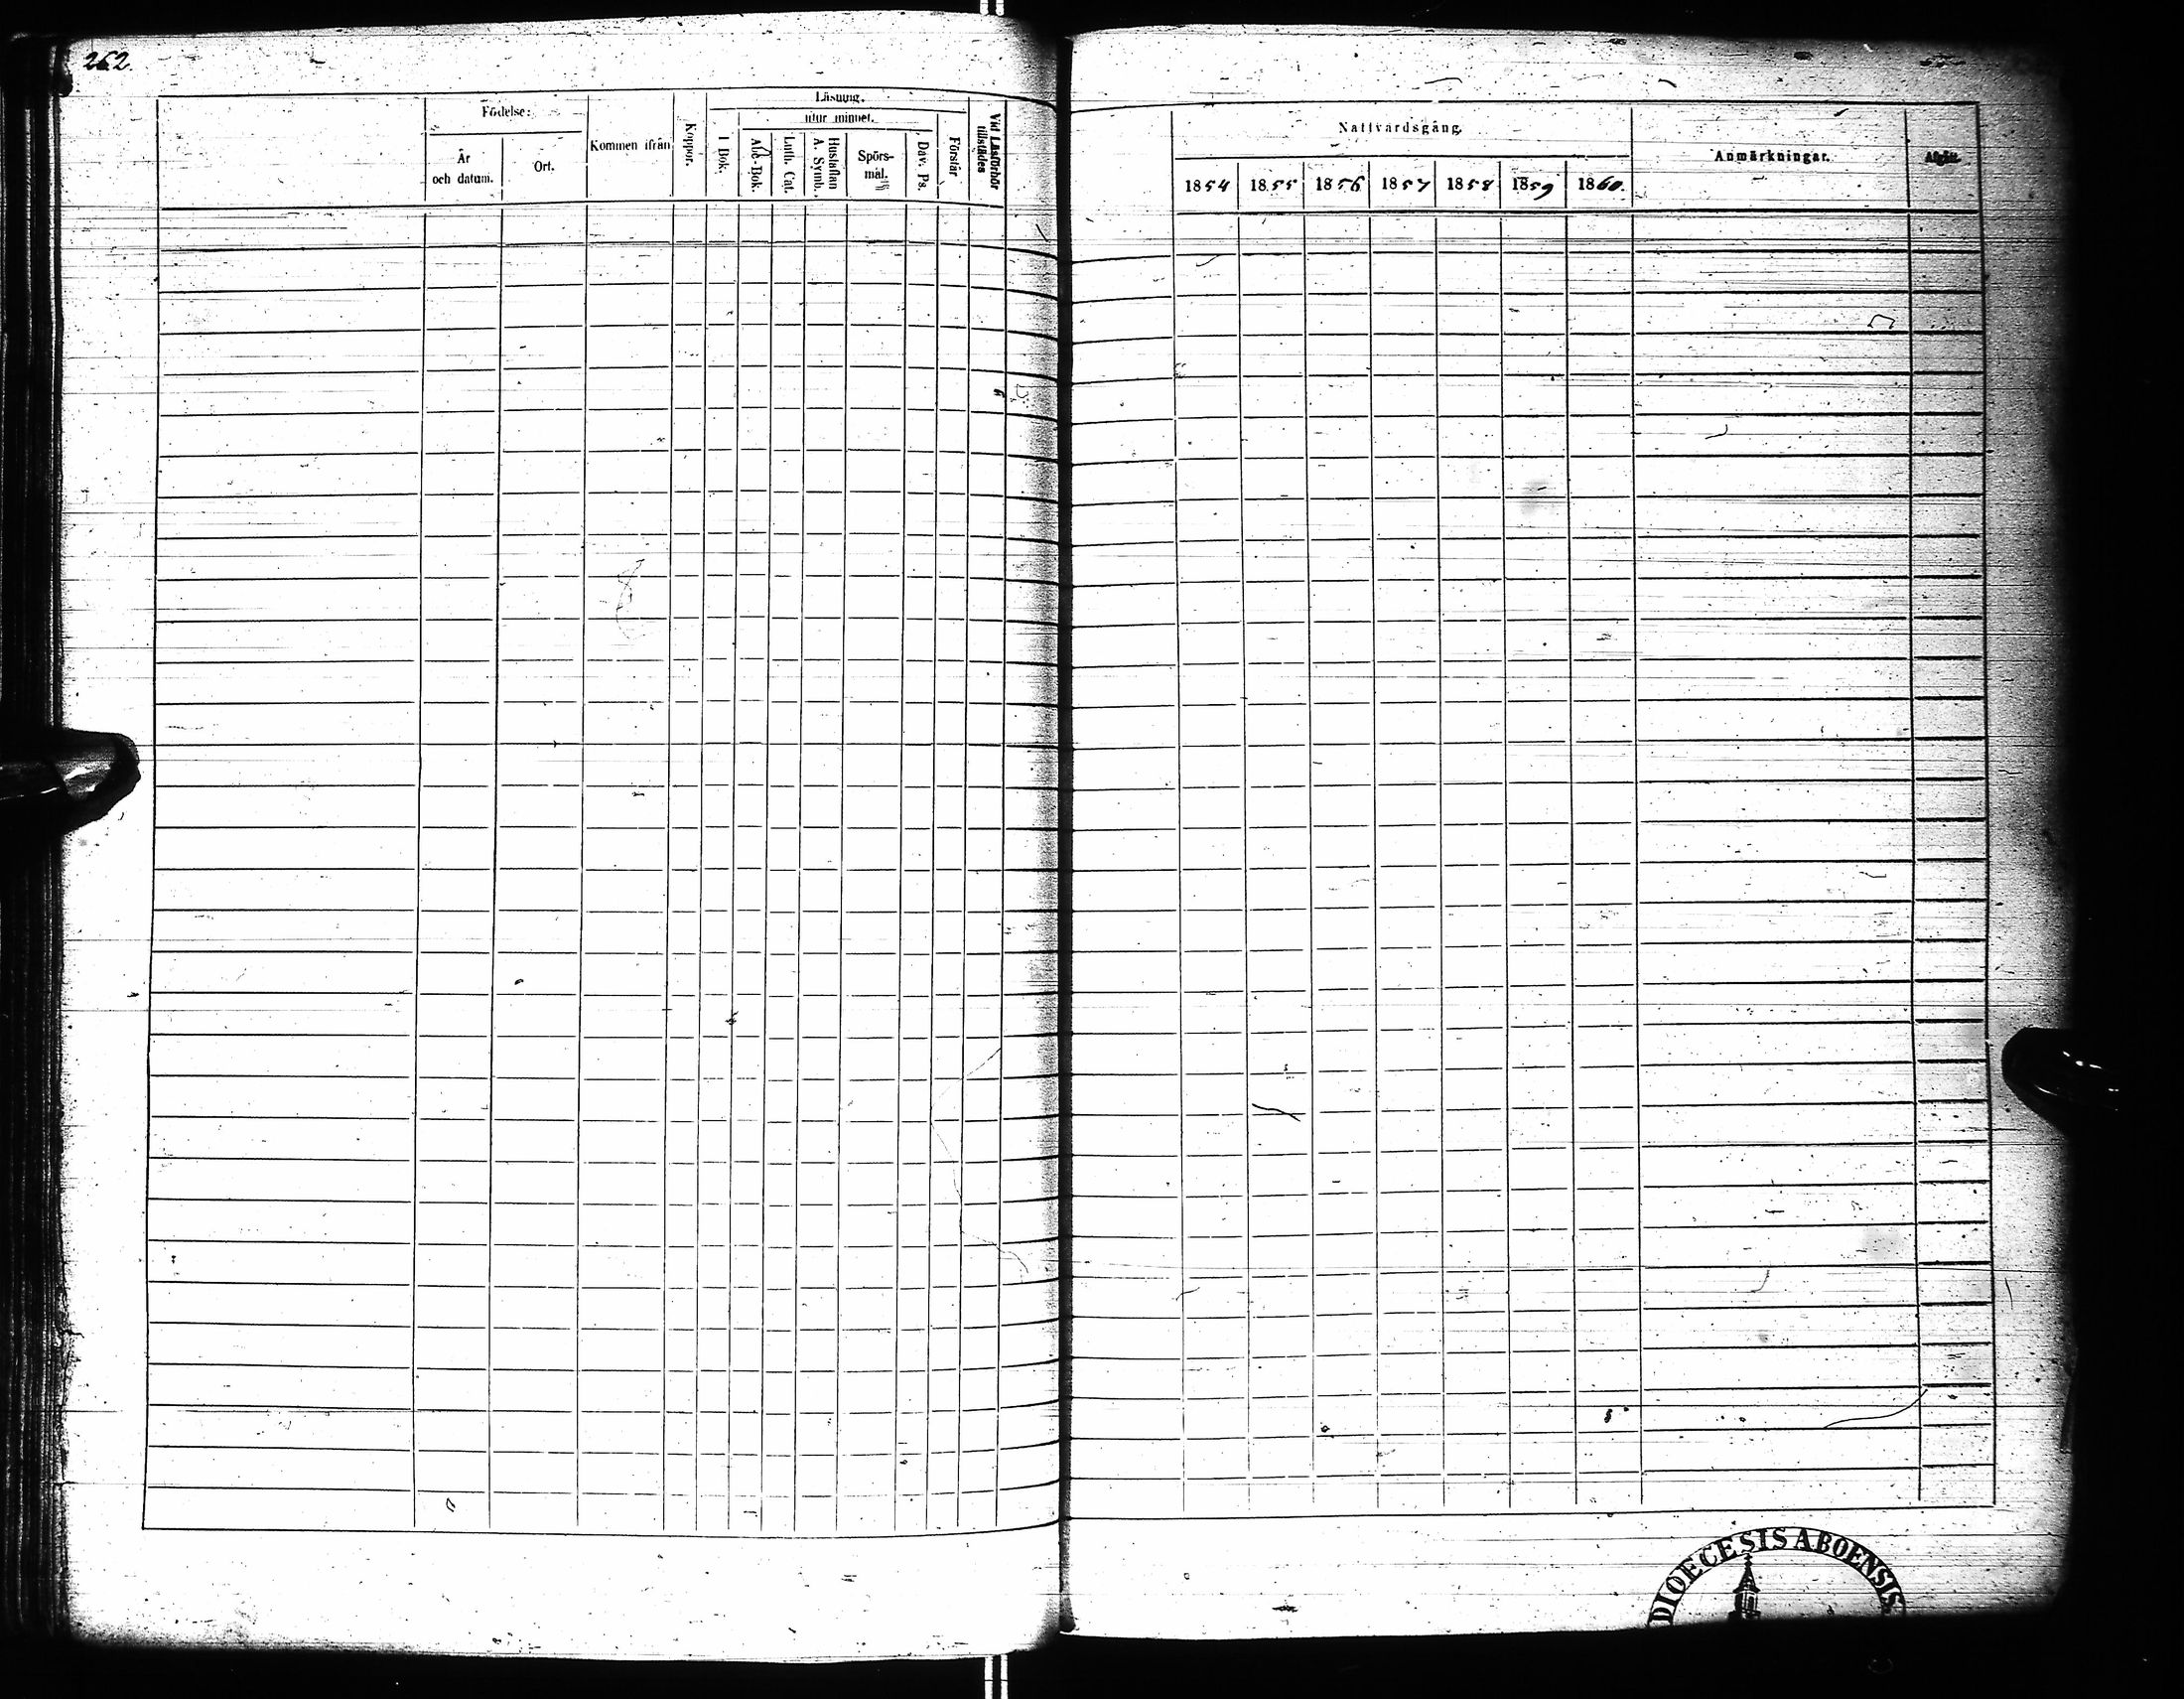 262.
Födelse:
År
och datum.
Ort.
Kommen ifrån
Koppor.
Läsning.
I Bok.
utur minnet.
Abc-Bok.
Luth. Cat.
Hustaflan
A. Symb.
Spörs-
mål.
Dav. Ps.
Förstår
Vid Läsförhör
tillstädes
Nattvardsgång.
1854 1855 1856 1857 1858 1859 1860.
Anmärkningar.
Afgått.
DIOECESIS ABOENSIS